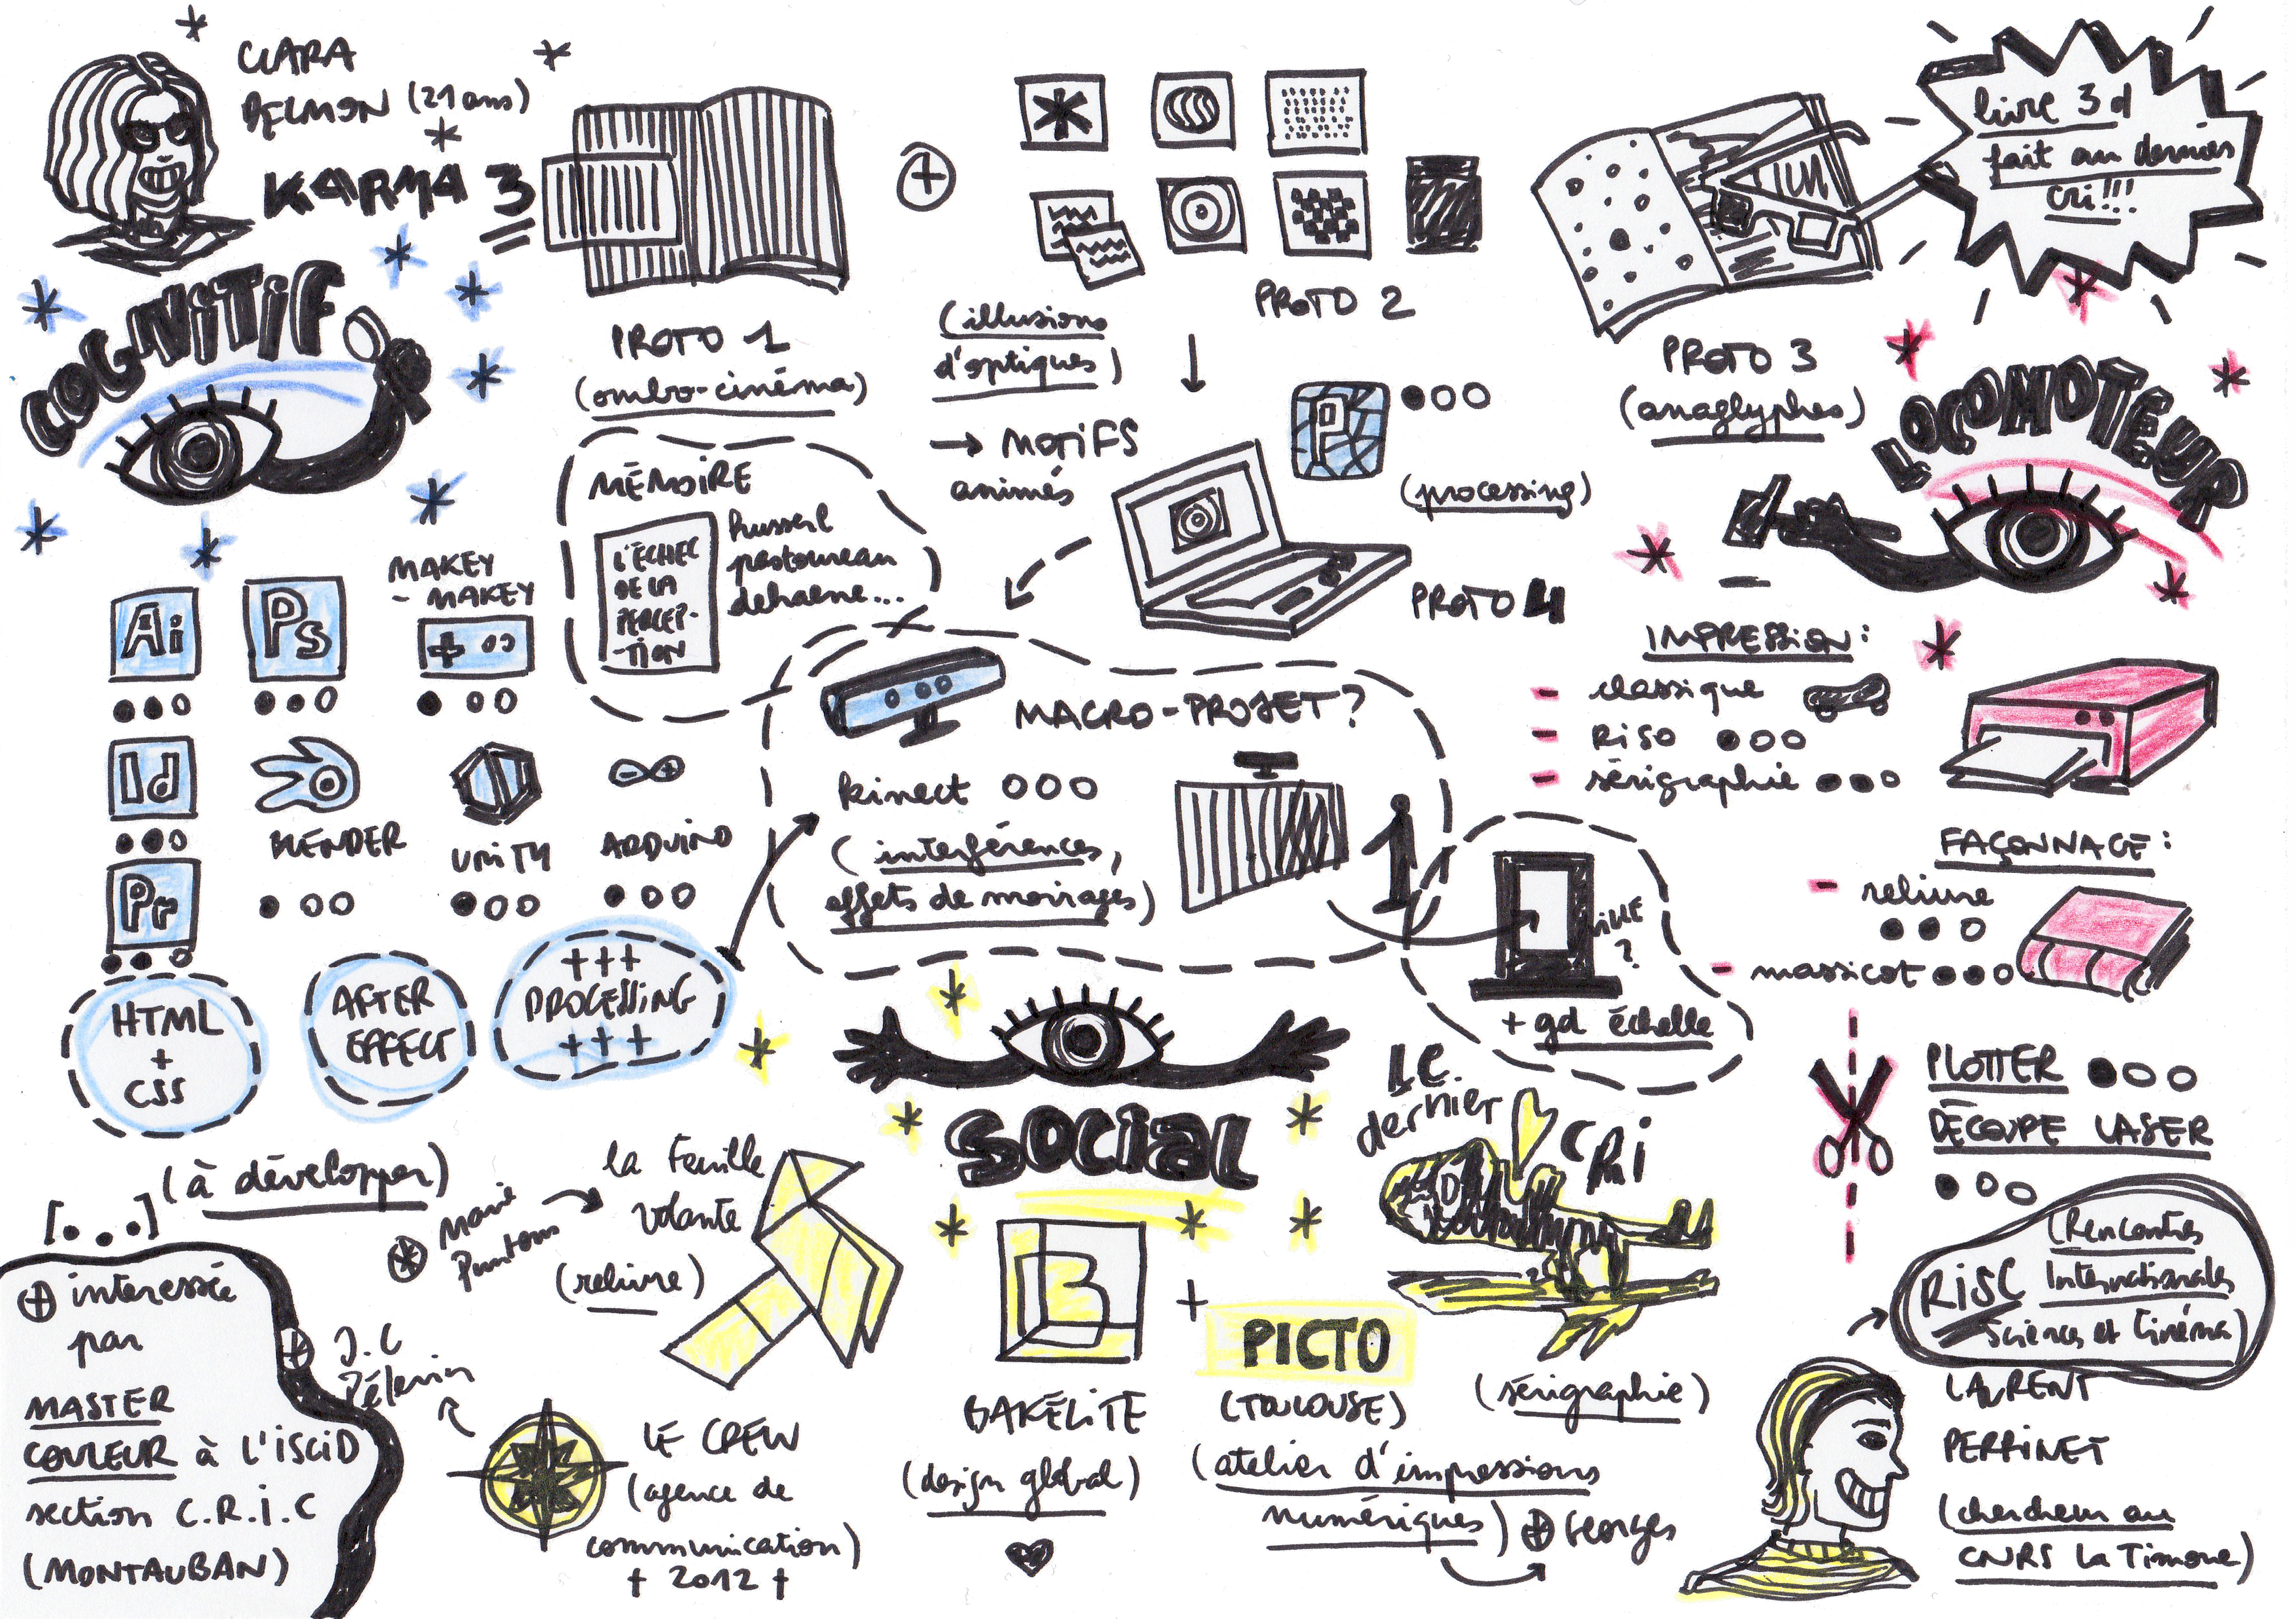 CLARA
BELMON (21 ans)
KARMA 3
COGNITIF
PROTO 1
(ombro-cinéma)
(illusions
d'optiques)
→ MOTIFS
animés
PROTO 2
livre 3d
fait au dernier
cri!!!
PROTO 3
(anaglyphes)
LOCOMOTEUR
P
(processing)
PROTO 4
MÉMOIRE
L'ÉCHEC
DE LA
PERCEP-
-TION
husserl
pastoureau
dehaene...
Ai
Ps
MAKEY
- MAKEY
Id
BLENDER
UNITY
ARDUINO
Pr
HTML
+
CSS
AFTER
EFFECT
+++
PROCESSING
+++
(à développer)
[...]
MACRO-PROJET?
kinect
(interférences,
effets de moirages)
ville
?
+ gd échelle
IMPRESSION:
- classique
- RISO
- sérigraphie
FAÇONNAGE:
- reliure
- massicot
PLOTTER
DÉCOUPE LASER
SOCIAL
Marie
la feuille
volante
(reliure)
LE
dernier
CRI
(sérigraphie)
B
BAKÉLITE
(design global)
+
PICTO
(TOULOUSE)
(atelier d'impressions
numériques) + Georges
J.C
Pélerin
LE CREW
(agence de
communication)
† 2012 †
+ interessée
par
MASTER
COULEUR à L'ISCID
section C.R.I.C
(MONTAUBAN)
RISC
(Rencontres
Internationales
Sciences et Cinéma)
LAURENT
PERRINET
(chercheur au
CNRS La Timone)